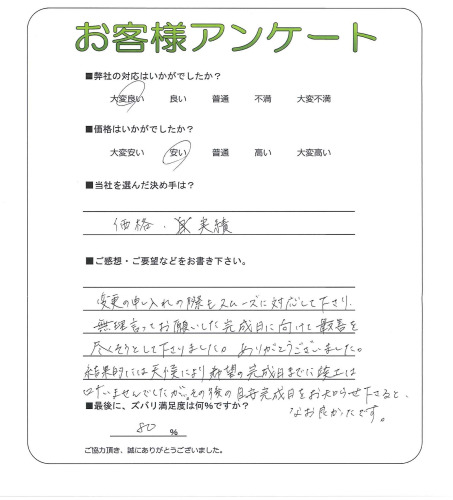 お客様アンケート
■弊社の対応はいかがでしたか？
大変良い 良い 普通 不満 大変不満
■価格はいかがでしたか？
大変安い 安い 普通 高い 大変高い
■当社を選んだ決め手は？
価格・実績
■ご感想・ご要望などをお書き下さい。
変更の申し入れの際もスムーズに対応して下さり、
無理言ってお願いした完成日に向けて最善を
尽くそうとして下さりました。ありがとうございました。
結果的には天候により希望の完成日までに竣工は
できませんでしたが、その後の目安完成日をお知らせ下さると、
なお良かったです。
■最後に、ズバリ満足度は何%ですか？
80 %
ご協力頂き、誠にありがとうございました。